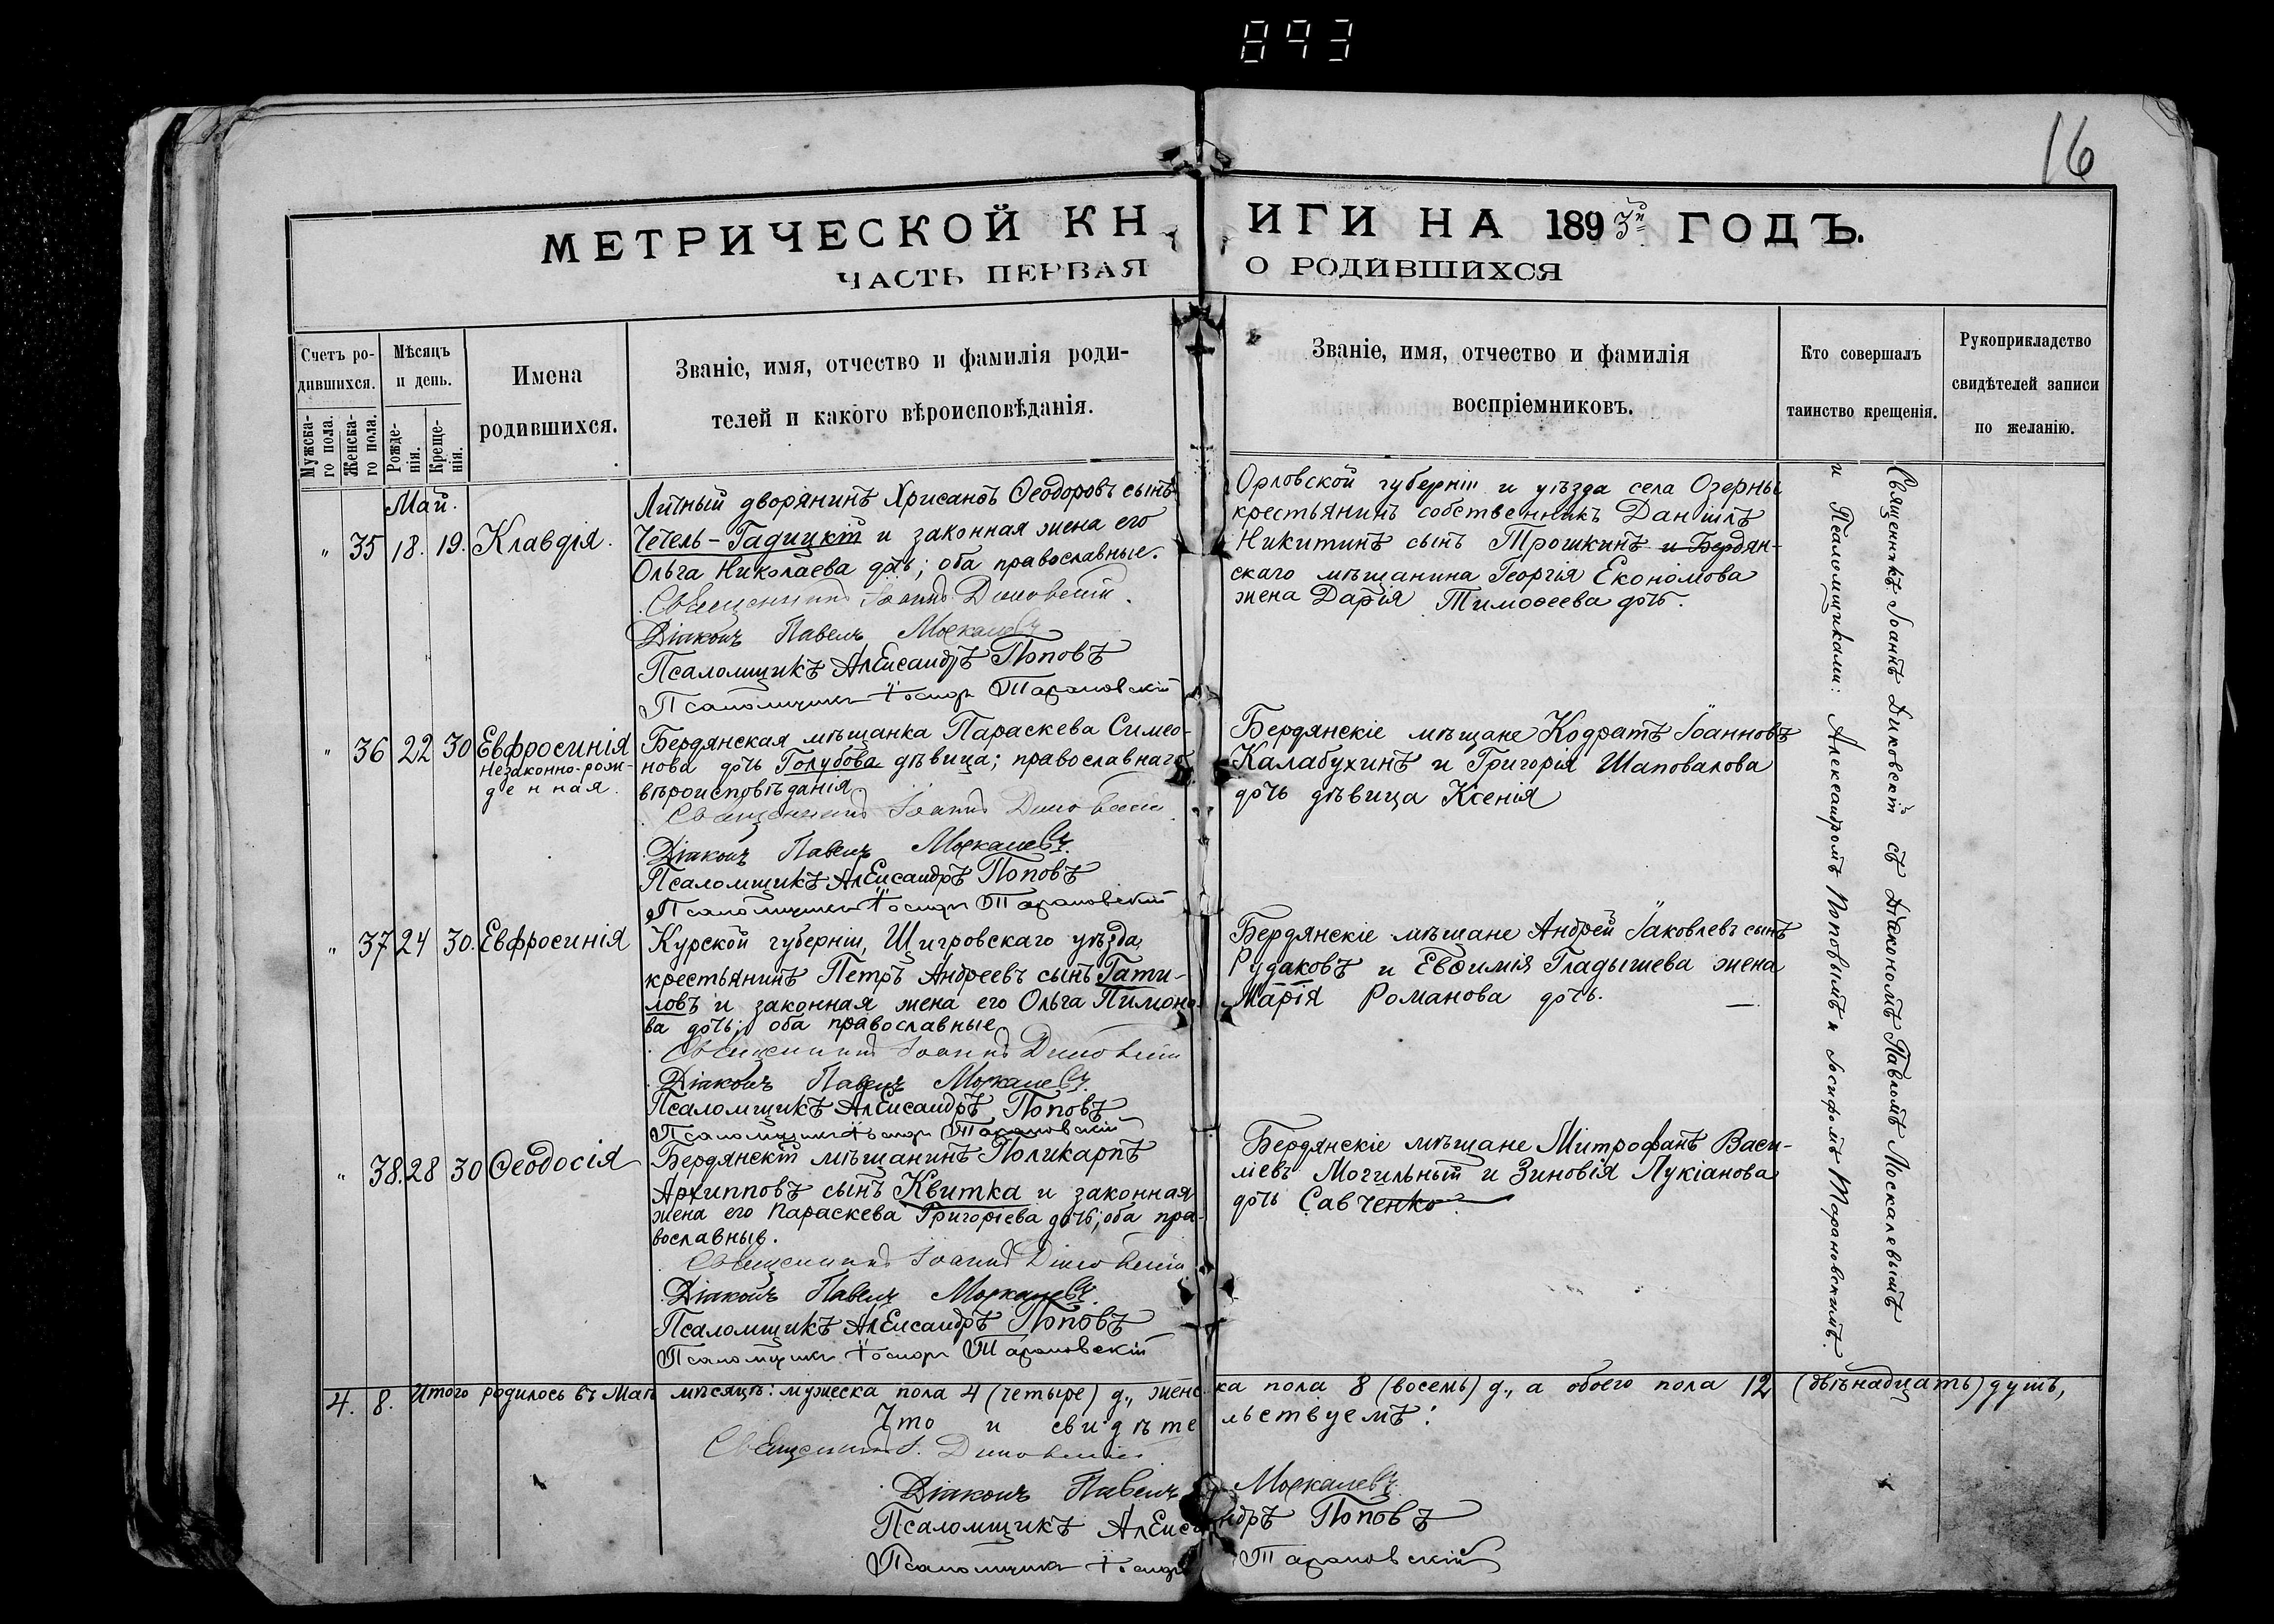 893
16
МЕТРИЧЕСКОЙ КНИГИ НА 1893й ГОДЪ.
ЧАСТЬ ПЕРВАЯ О РОДИВШИХСЯ
Счетъ ро-
дившихся.
Мужска-
го пола.
Женска-
го пола.
Мѣсяцъ
и день.
Рожде-
нія.
Креще-
нія.
Имена
родившихся.
Званіе, имя, отчество и фамилія роди-
телей и какого вѣроисповѣданія.
Званіе, имя, отчество и фамилія
воспріемниковъ.
Кто совершалъ
таинство крещенія.
Рукоприкладство
свидѣтелей записи
по желанію.
Май.
" 35 18. 19. Клавдія.
Личный дворянинъ Хрисанѳъ Ѳеодоровъ сынъ
Чечель-Гадицкій и законная жена его
Ольга Николаева дочь; оба православные.
Священникъ Іоаннъ Диковскій.
Діаконъ Павелъ Москалевъ
Псаломщикъ Александръ Поповъ
Псаломщикъ Іосифъ Тарановскій
Орловской губерніи и уѣзда села Озерны
крестьянинъ собственникъ Даніилъ
Никитинъ сынъ Трошкинъ и Бердян-
скаго мѣщанина Георгія Економова
жена Дарія Тимоѳеева дочь.
" 36 22 30 Евфросинія
Незаконно-рож-
денная.
Бердянская мѣщанка Параскева Симео-
нова дочь Голубова дѣвица; православнаго
вѣроисповѣданія
Священникъ Іоаннъ Диковскій
Діаконъ Павелъ Москалевъ.
Псаломщикъ Александръ Поповъ
Псаломщикъ Іосифъ Тарановскій
Бердянскіе мѣщане Кодратъ Іоанновъ
Калабухинъ и Григорія Шаповалова
дочь дѣвица Ксенія
" 37 24 30. Евфросинія
Курской губерніи, Щигровскаго уѣзда,
крестьянинъ Петръ Андреевъ сынъ Гати-
ловъ и законная жена его Ольга Пимоно-
ва дочь; оба православные
Священникъ Іоаннъ Диковскій
Діаконъ Павелъ Москалевъ.
Псаломщикъ Александръ Поповъ
Псаломщикъ Іосифъ Тарановскій
Бердянскіе мѣщане Андрей Іаковлевъ сынъ
Рудаковъ и Евѳимія Гладышева жена
Марія Романова дочь.
" 38. 28 30 Ѳеодосія
Бердянскій мѣщанинъ Поликарпъ
Архипповъ сынъ Квитка и законная
жена его Параскева Григоріева дочь; оба пра-
вославные.
Священникъ Іоаннъ Диковскій
Діаконъ Павелъ Москалевъ.
Псаломщикъ Александръ Поповъ
Псаломщикъ Іосифъ Тарановскій
Бердянскіе мѣщане Митрофанъ Васи-
ліевъ Могильный и Зиновія Лукіанова
дочь Савченко.
Священникъ Іоаннъ Диковскій съ Діакономъ Павломъ Москалевымъ
и Псаломщиками: Александромъ Поповымъ и Іосифомъ Тарановскимъ.
4. 8. Итого родилось въ Маѣ мѣсяцѣ: мужеска пола 4 (четыре) д., женска пола 8 (восемь) д., а обоего пола 12 (двѣнадцать) душъ,
Что и свидѣтельствуемъ:
Священникъ І. Диковскій
Діаконъ Павелъ Москалевъ.
Псаломщикъ Александръ Поповъ
Псаломщикъ Іосифъ Тарановскій